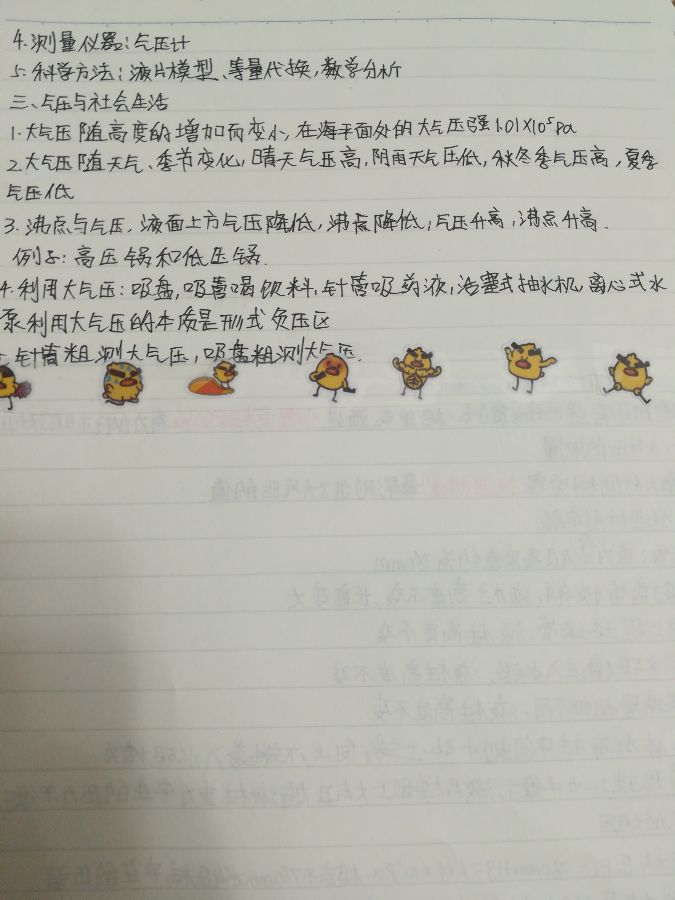 4.测量仪器:气压计
5.科学方法:液片模型、等量代换,数学分析
三、气压与社会生活
1.大气压随高度的增加而变小,在海平面处的大气压强1.01×10⁵pa
2.大气压随天气、季节变化,晴天气压高,阴雨天气压低,秋冬季气压高,夏季
气压低
3.沸点与气压,液面上方气压降低,沸点降低,气压升高,沸点升高.
例子:高压锅和低压锅.
4.利用大气压:吸盘,吸管喝饮料,针管吸药液,活塞式抽水机,离心式水
泵利用大气压的本质是形式负压区
针管粗测大气压,吸盘粗测大气压.